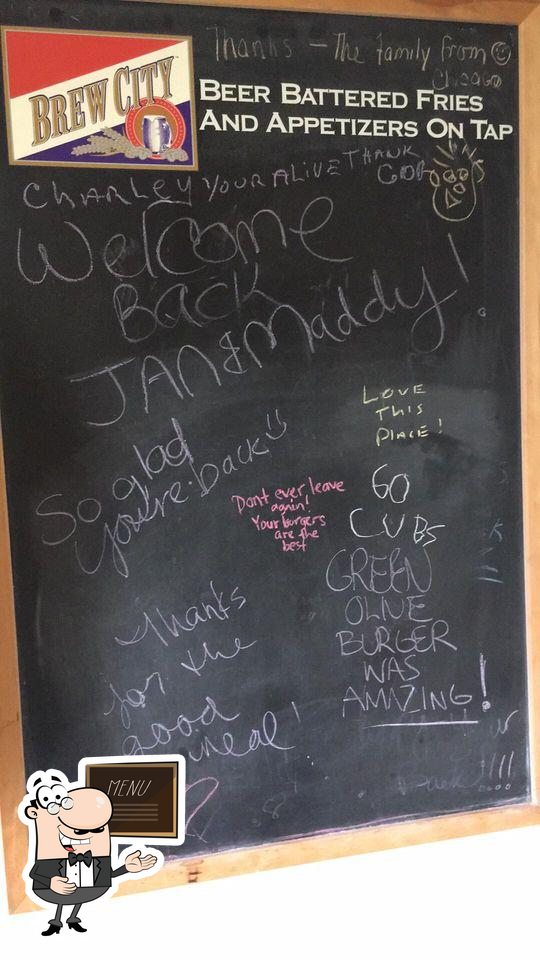 Thanks - The Family from
Chicago
BREW CITY
BEER BATTERED FRIES
AND APPETIZERS ON TAP
CHARLEY YOUR ALIVE THANK
GOD
Welcome
BACK
JAN & Maddy!
LOVE
THIS
PLACE!
So glad
you're back
Dont ever leave
again!
Your burgers
are the
best
GO
CUBS
GREEN
OLIVE
BURGER
WAS
AMAZING!
Thanks
for the
good
meal!
MENU